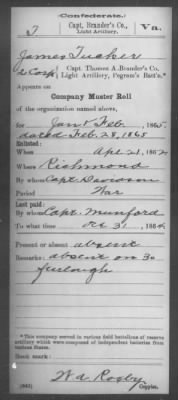 (Confederate.)
T Capt. Brander's Co., Va.
Light Artillery.
James Tucker
2 Corp, Capt. Thomas A. Brander's Co.,
Light Artillery, Pegram's Batt'n.*
Appears on
Company Muster Roll
of the organization named above,
for Jan & Feb, 1865.
dated Feb. 28, 1865
Enlisted:
When Apr 21, 1862
Where Richmond
By whom Capt. Davidson
Period War
Last paid:
By whom Capt. Munford
To what time Oct 31, 1864.
Present or absent absent
Remarks: absent on 30
furlough
*This company served in various field battalions of reserve
artillery which were composed of independent batteries from
various States.
Book mark:
(642) Copyist.